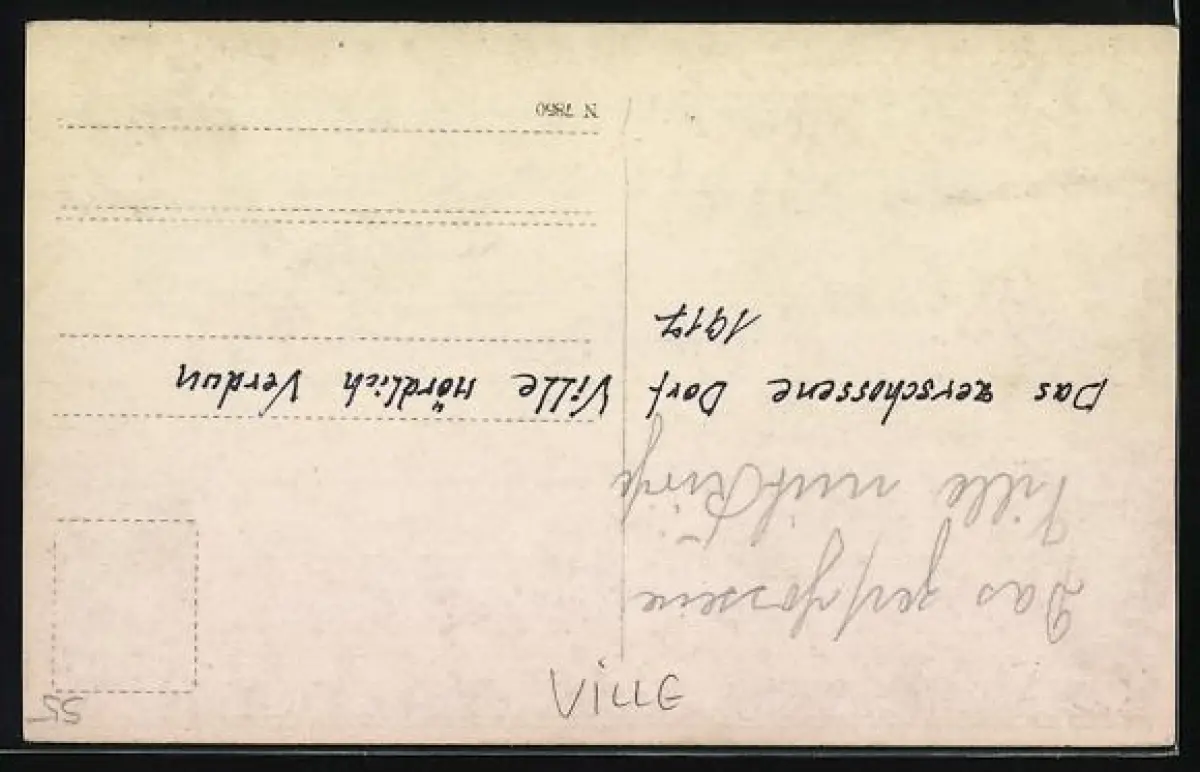 Das zerschossene
Ville mit Kirche
Das zerschossene Dorf Ville nördlich Verdun
1917
N 7850
VILLE
55